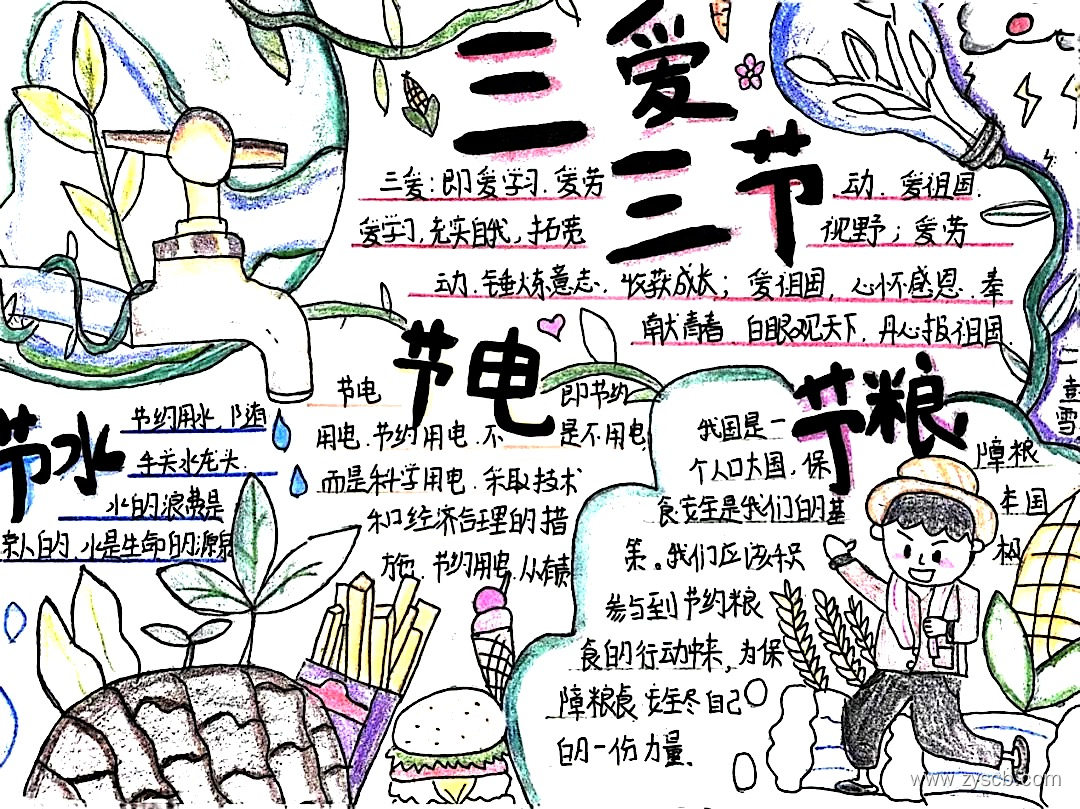 三爱
三节
三爱:即爱学习.爱劳动.爱祖国.
爱学习,充实自我,拓宽视野;爱劳
动.锤炼意志.收获成长;爱祖国,心怀感恩.奉
献青春.白眼观天下.丹心报祖国.
节水
节约用水,随
手关水龙头.
水的浪费是
人的.水是生命的源泉
节电
节电即节约
用电.节约用电.不是不用电,
而是科学用电.采取技术
和经济合理的措
施.节约用电,从
节粮
我国是一
个人口大国,保障粮
食安全是我们的基本国
策。我们应该积极
参与到节约粮
食的行动中来,为保
障粮食安全尽自己
的一份力量.
www.zyscb.com